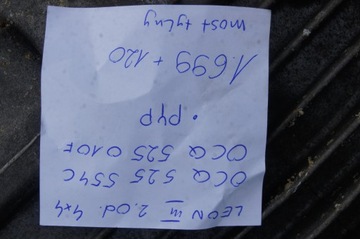 LEON III 2.0d. 4x4
0CQ 525 554C
0CQ 525 010F
• PYP
1.699 + 120
most tylny